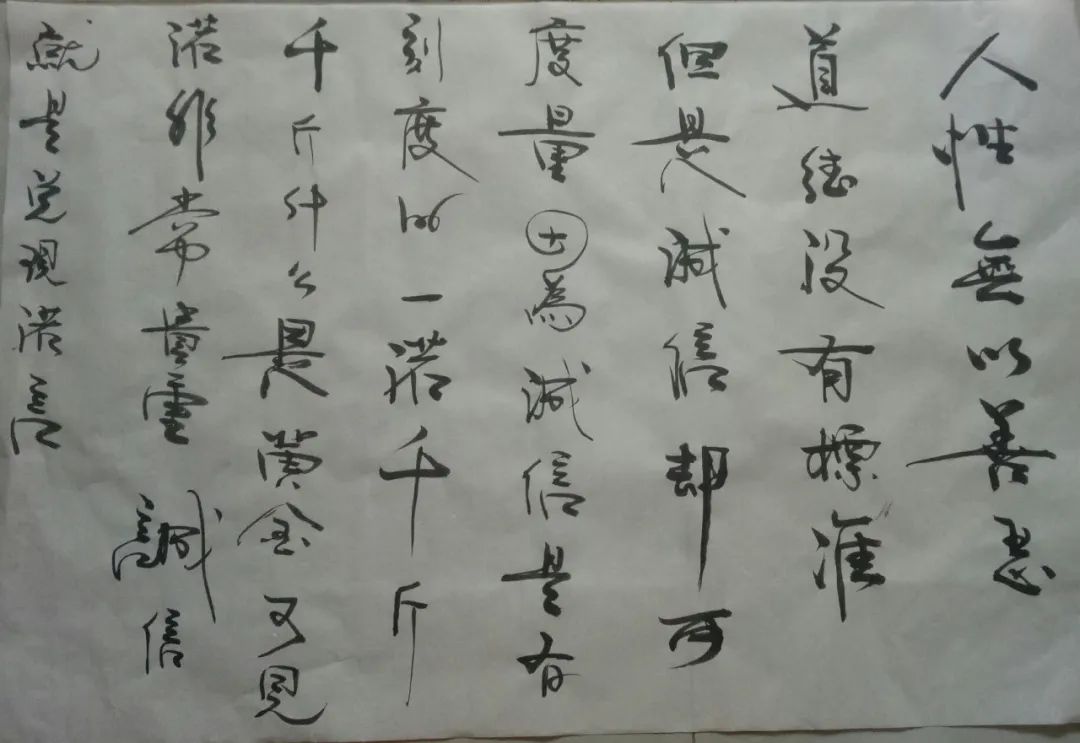 人性無以善惡
道德没有標准
但是诚信却可
度量因為诚信是有
刻度的一诺千斤
千斤什么是黄金可見
诺非常貴重誠信
就是兑現诺言